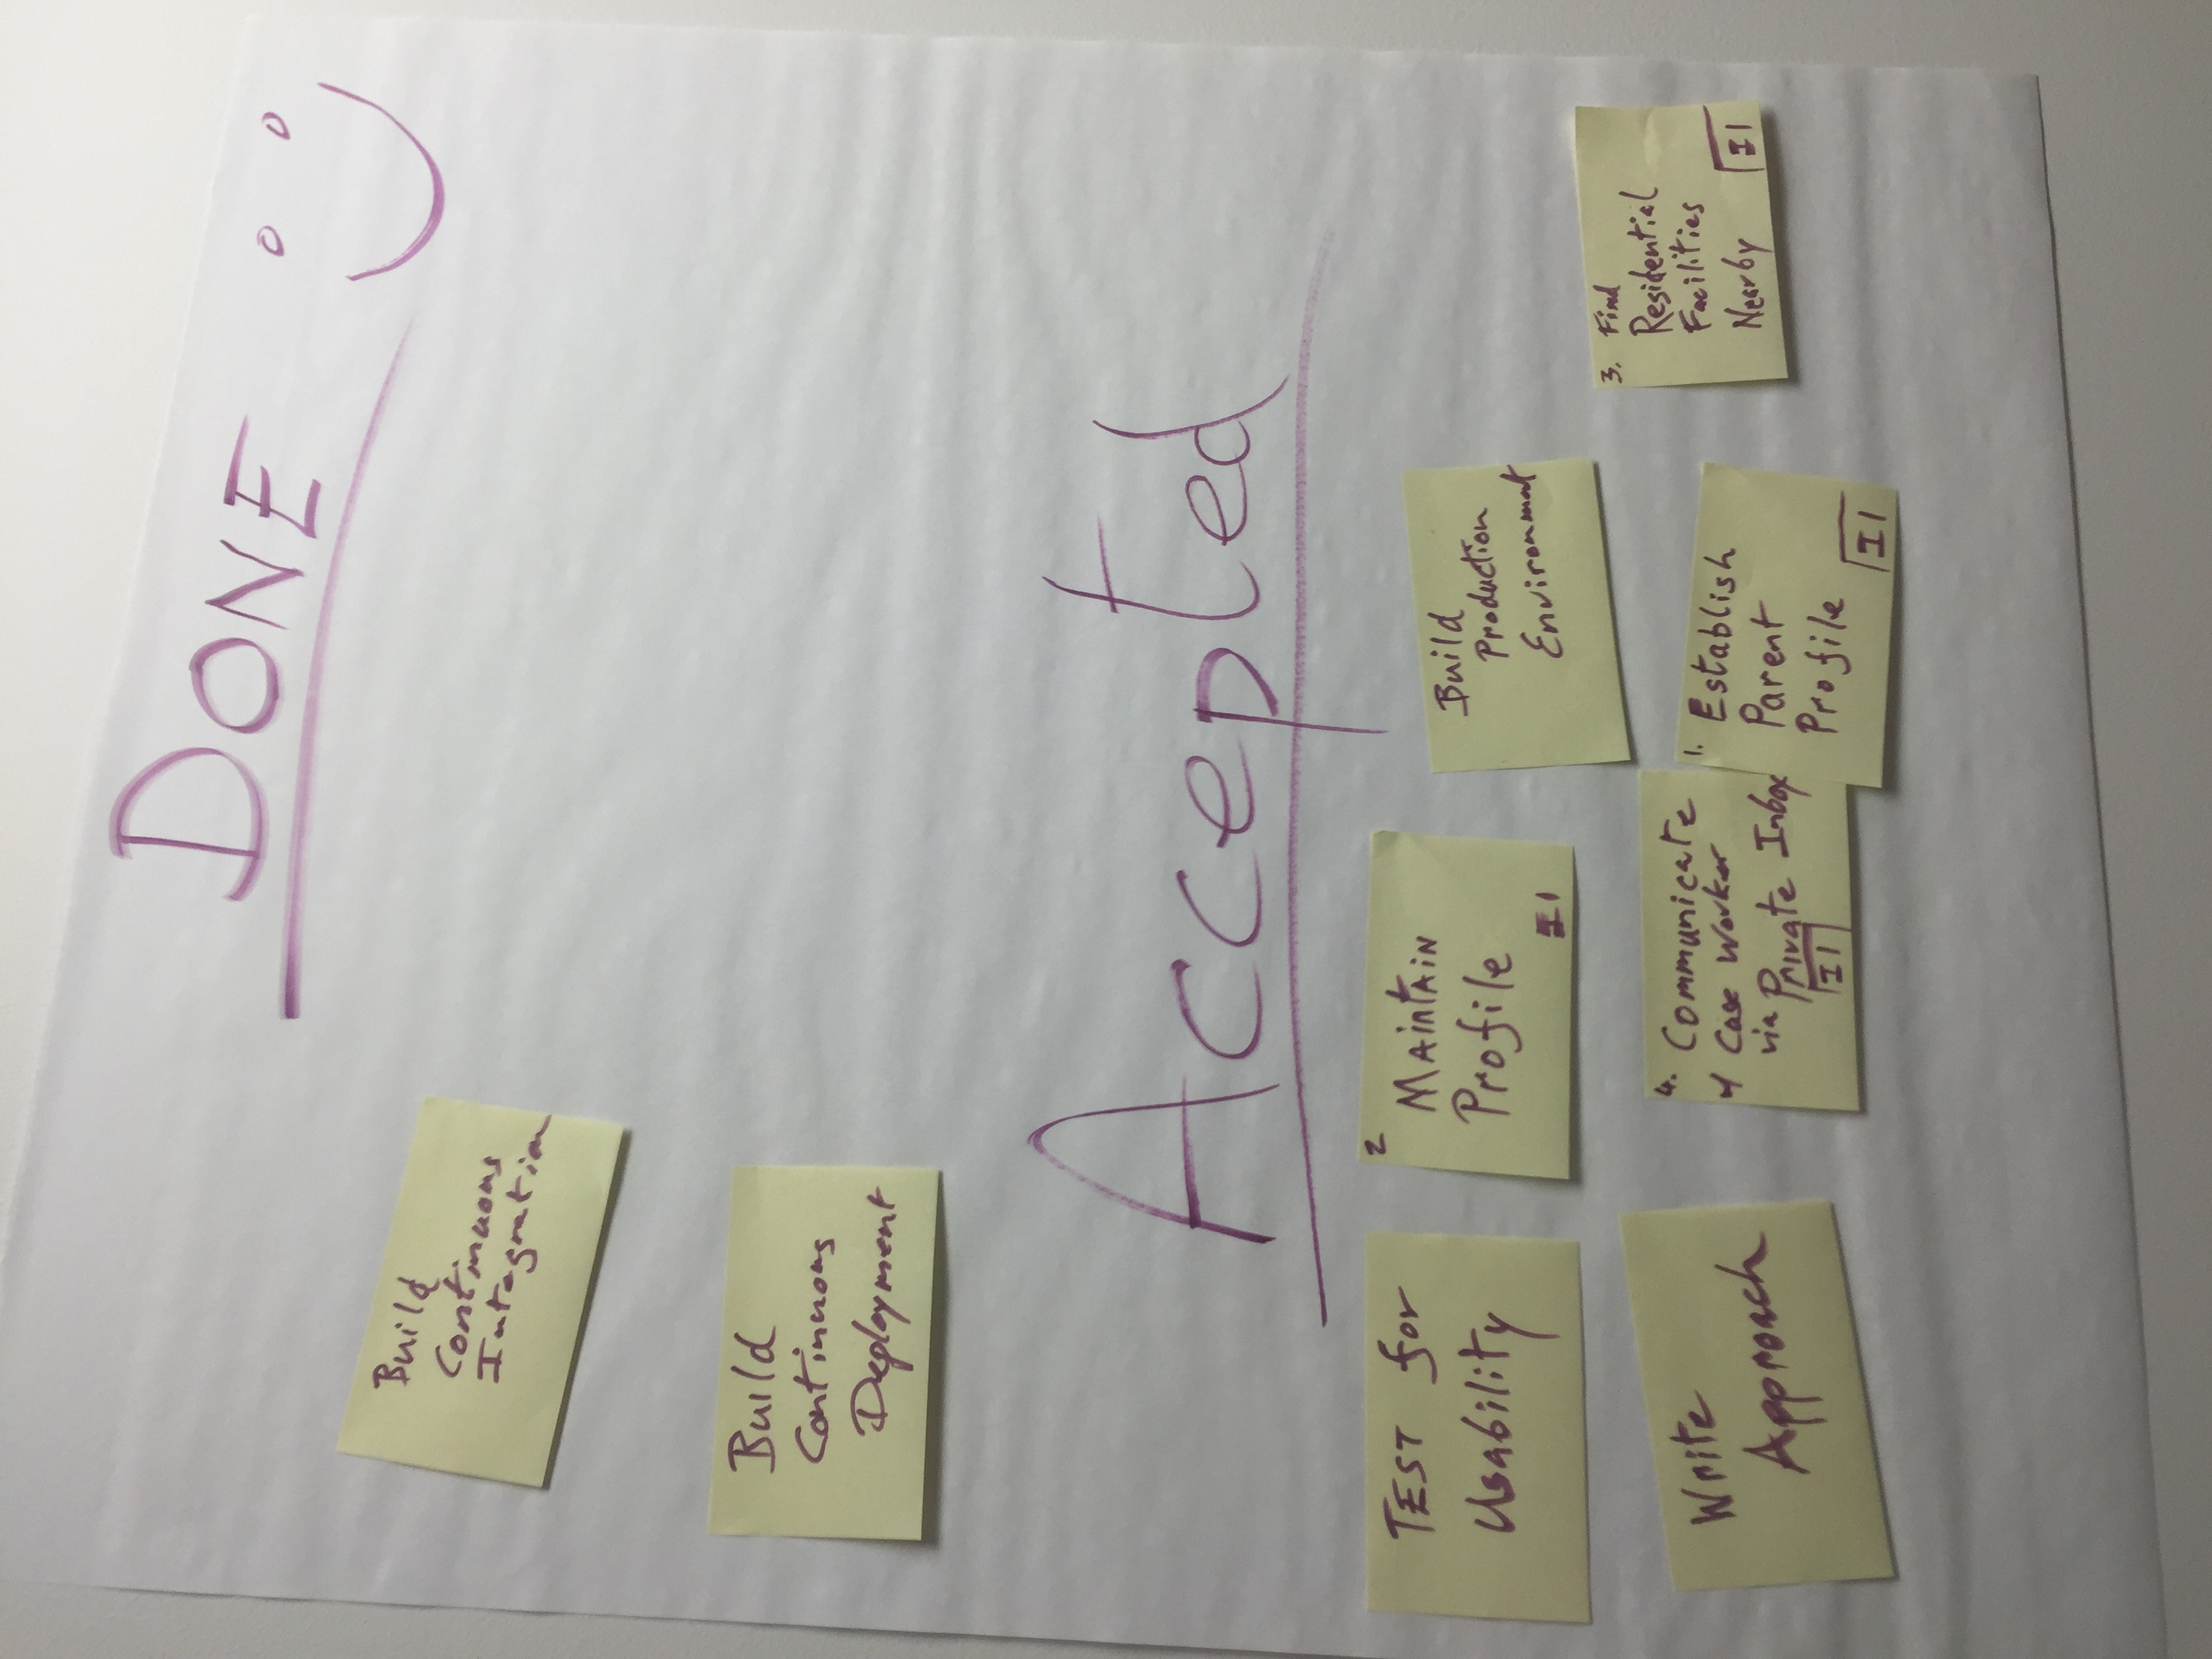 DONE
Build
Continuous
Integration
Build
Continuous
Deployment
Accepted
TEST for
Usability
2
MAintAiN
Profile
I1
Build
Production
Environment
3. Find
Residential
Facilities
Nearby
I1
Write
Approach
4. Communicate
w/ Case Worker
via Private Inbox
I1
1. Establish
Parent
Profile
I1